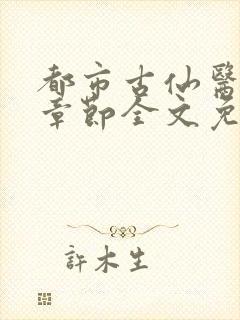 都市古仙醫
章節全文免
許木生